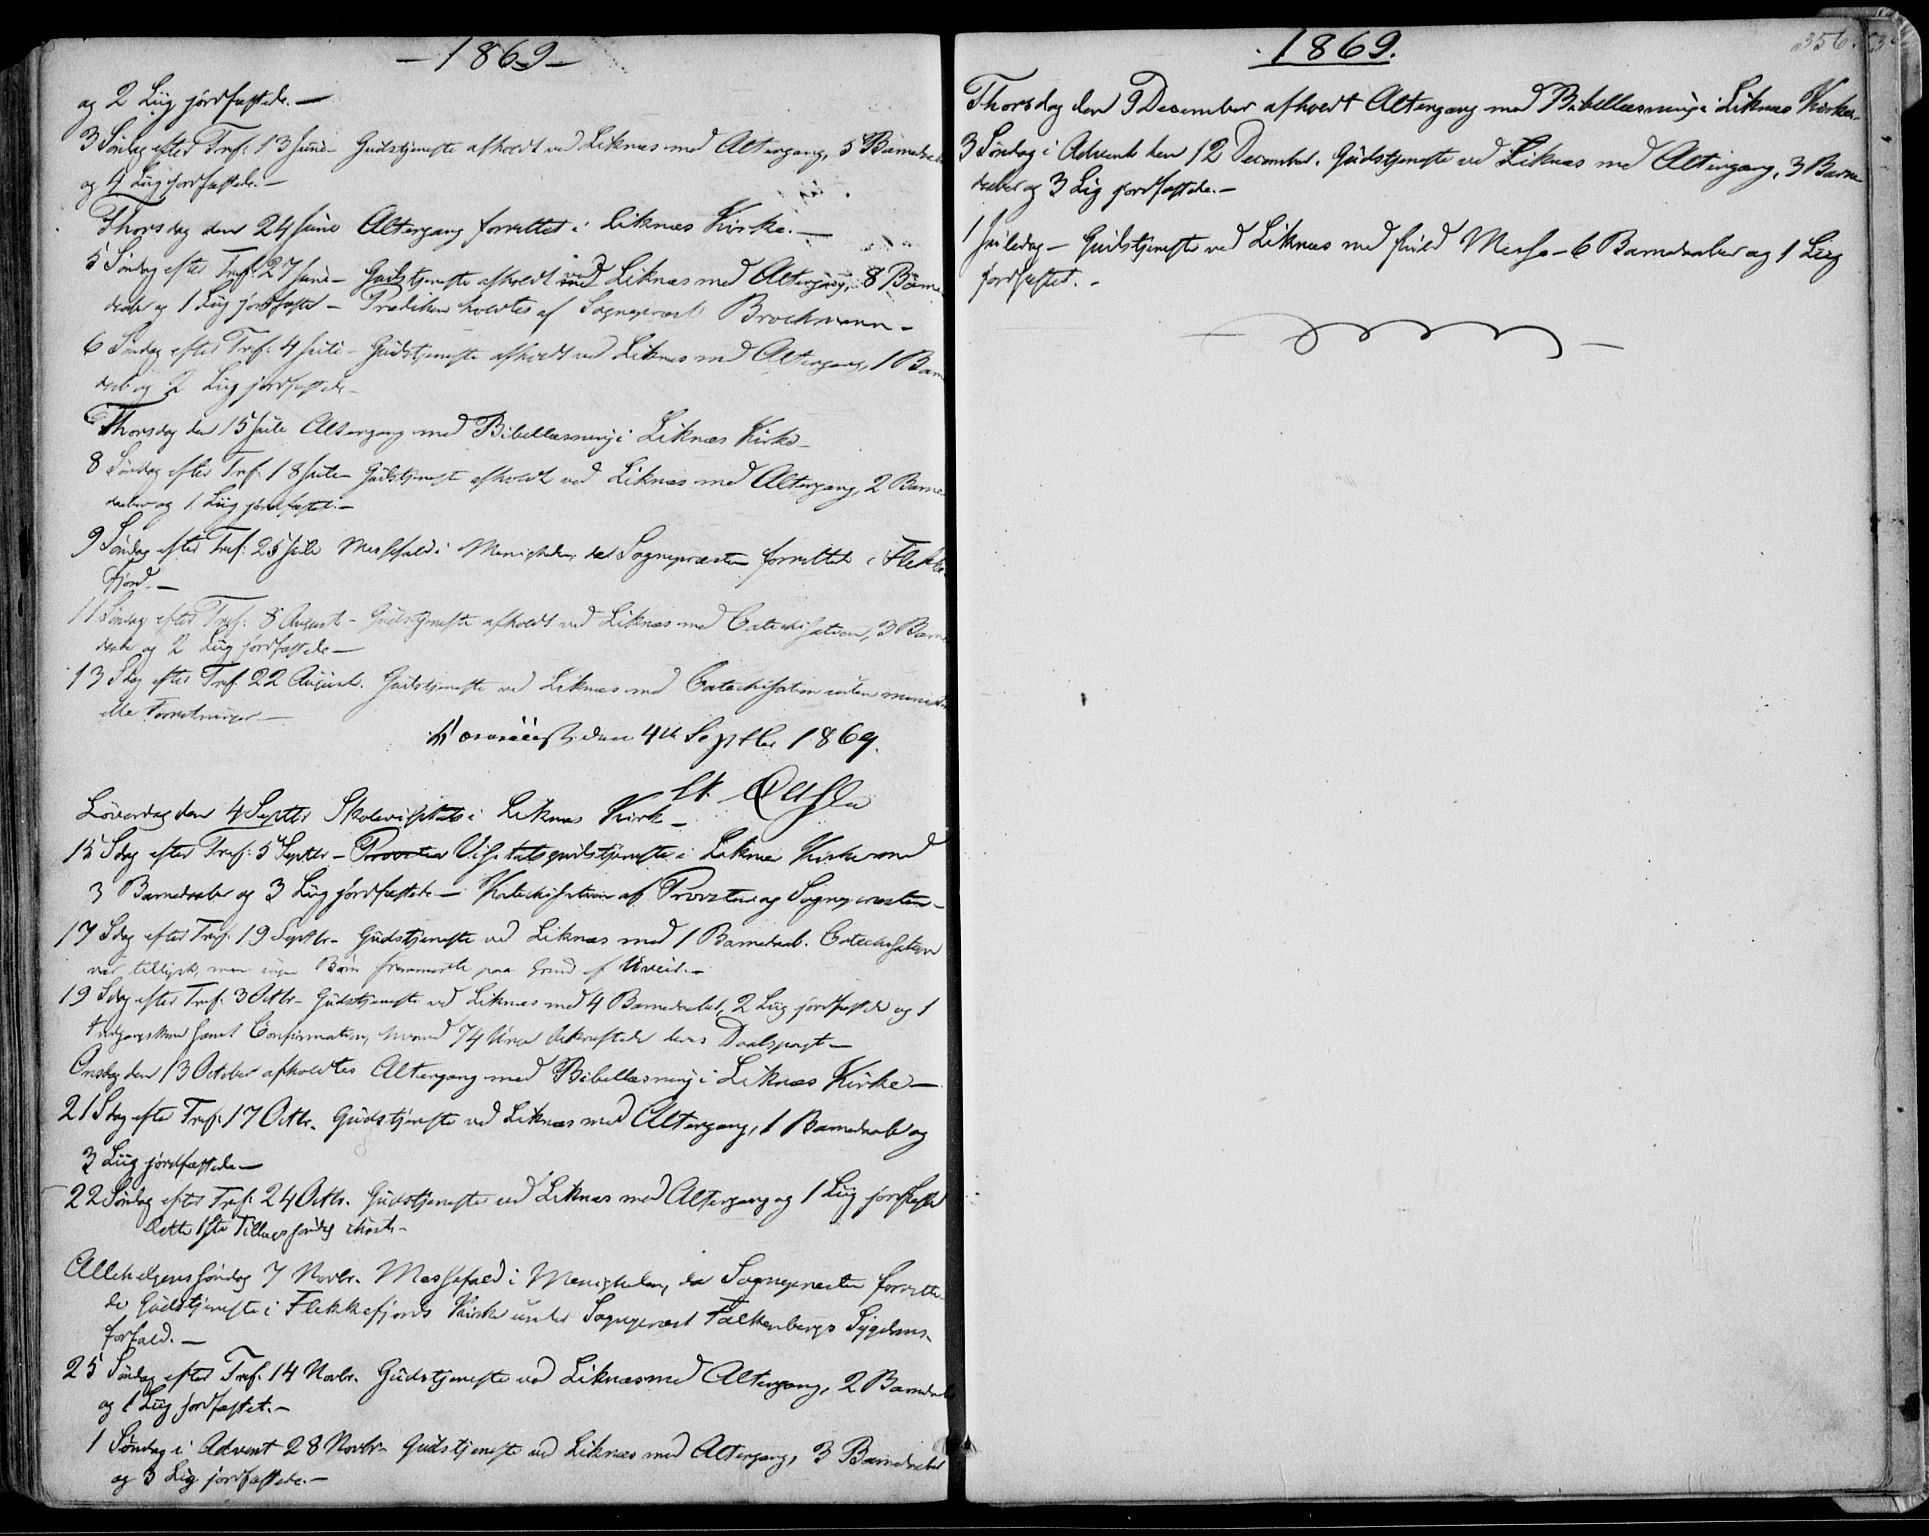 - 1869 -
og 2 Liig jordfæstede. -
3 Søndag efter Tref: 13 Juni - Gudstjeneste afholdt ved Liknæs med Altergang, 5 Barnedaabe
og 4 Liig jordfæstede. -
Thorsdag den 24 Juni Altergang forrettet i Liknæs Kirke. -
5 Søndag efter Tref: 27 Juni - Gudstjeneste afholdt ved Liknæs med Altergang, 8 Barne-
daabe og 1 Liig jordfæstet - Prædiken holdtes af Sognepræst Brochmann -
6 Søndag efter Tref: 4 Juli - Gudstjeneste afholdt ved Liknæs med Altergang, 1 Barne
daab og 2 Liig jordfæstede -
Thorsdag den 15 Juli Altergang med Bibellæsning i Liknæs Kirke -
8 Søndag efter Tref: 18 Juli - Gudstjeneste afholdt ved Liknæs med Altergang, 2 Barne-
daaber og 1 Liig jordfæstet. -
9 Søndag efter Tref: 25 Juli Messefald i Menigheden, da Sognepræsten forrettede i Flekke-
fjord. -
11 Søndag efter Tref: 8 August - Gudstjeneste afholdt ved Liknæs med Catechisation, 3 Barne
daabe og 2 Liig jordfæstede -
13 Sdag efter Tref. 22 August. Gudstjeneste ved Liknæs med Catechisation uden ministeri
elle Forretninger -
den 4de Septbr 1869.
Løverdag den 4 Septbr Skolevisitats i Liknæs Kirk -
15 Sdag efter Tref: 5 Septbr - Visitatsgudstjeneste i Liknæs Kirke med
3 Barnedaaber og 3 Liig jordfæstede - Katechisation af Provsten og Sognepræsten -
17 Sdag efter Tref: 19 Septbr - Gudstjeneste ved Liknæs med 1 Barnedaab. Catechisation
var tillyst, men ingen Børn fremmødte paa Grund af Uveir. -
19 Sdag efter Tref: 3 Octbr - Gudstjeneste ved Liknæs med 4 Barnedaaber, 2 Liig jordfæstede og 1
samt Confirmation, hvorved 74 Unge bekræftede deres Daabspagt -
Onsdag den 13 October afholdtes Altergang med Bibellæsning i Liknæs Kirke -
21 Sdag efter Tref: 17 Octbr. Gudstjeneste ved Liknæs med Altergang, 1 Barnedaab og
3 Liig jordfæstede -
22 Søndag efter Tref: 24 Octbr. Gudstjeneste ved Liknæs med Altergang og 1 Liig jordfæstet
Dette
Allehelgenssøndag 7 Novbr. Messefald i Menigheden, da Sognepræsten forrette-
de Gudstjeneste i Flekkefjords Kirke under Sognepræst Falkenbergs Sygdoms-
forfald. -
25 Søndag efter Tref: 14 Novbr. Gudstjeneste ved Liknæs med Altergang, 2 Barnedaabe
og 1 Liig jordfæstet. -
1 Søndag i Advent 28 Novbr - Gudstjeneste ved Liknæs med Altergang, 3 Barnedaaber
og 3 Lig jordfæstede. -
1869.
356.
Thorsdag den 9 December afholdt Altergang med Bibellæsning i Liknæs Kirke.
3 Søndag i Advent den 12 December. Gudstjeneste ved Liknæs med Altergang, 3 Barne
daaber og 3 Lig jordfæstede. -
1 Juledag - Gudstjeneste ved Liknæs med fuld Messe - 6 Barnedaaber og 1 Liig
jordfæstet. -